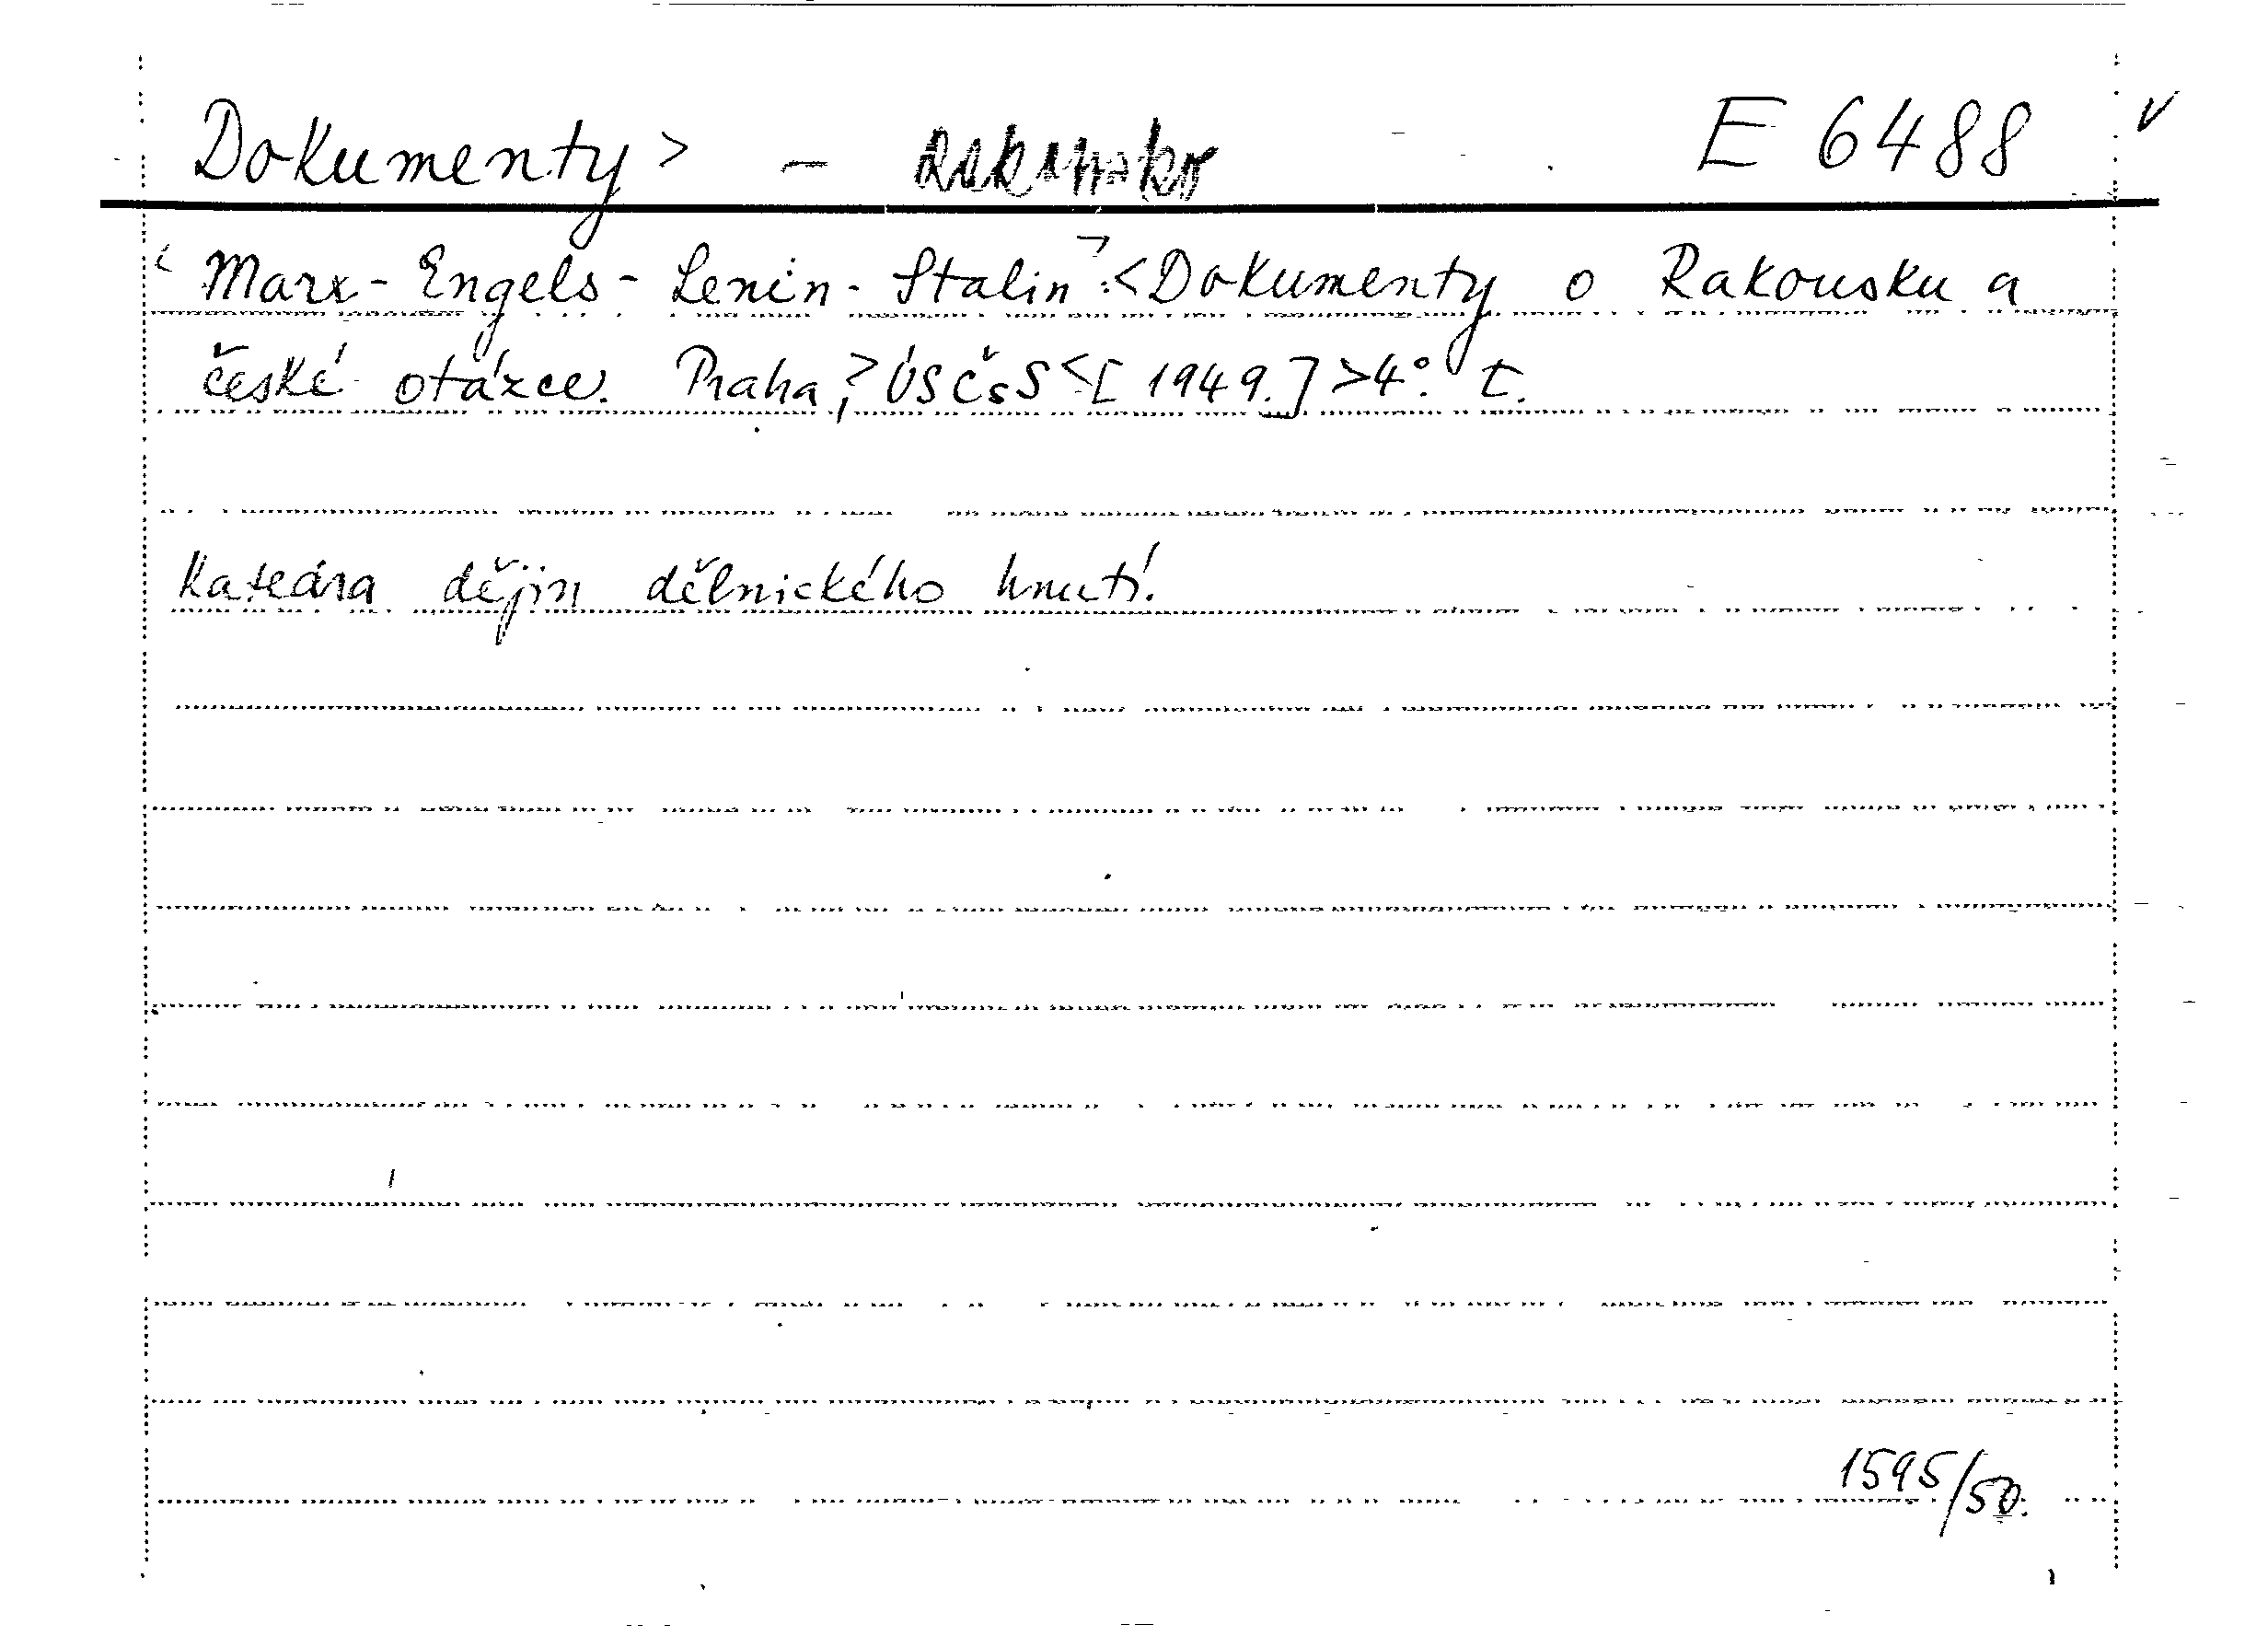 Dokumenty> – Rakousko E 6488 ✓
<Marx-Engels-Lenin-Stalin>:<Dokumenty o Rakousku a
české otázce. Praha,> ÚSČsS <[1949.]>4°. t.
Katedra dějin dělnického hnutí.
1595/50.